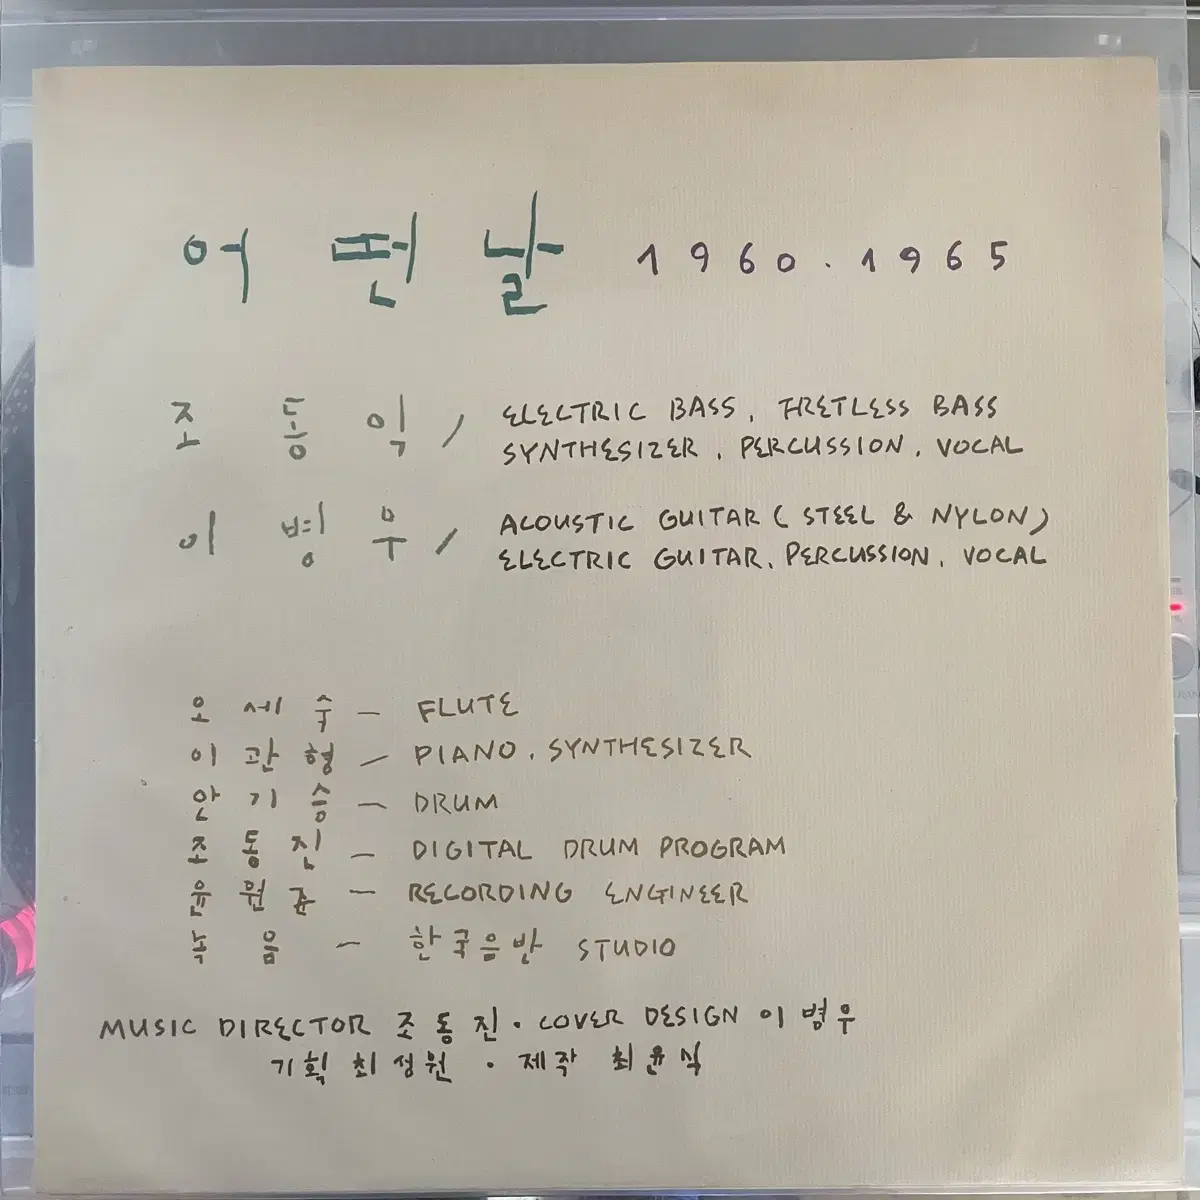 어떤날 1960.1965
조동익/ ELECTRIC BASS, FRETLESS BASS
SYNTHESIZER, PERCUSSION, VOCAL
이병우/ ACOUSTIC GUITAR (STEEL & NYLON)
ELECTRIC GUITAR, PERCUSSION, VOCAL
오세숙 — FLUTE
이관형 — PIANO, SYNTHESIZER
안기승 — DRUM
조동진 — DIGITAL DRUM PROGRAM
윤원균 — RECORDING ENGINEER
녹음 — 한국음반 STUDIO
MUSIC DIRECTOR 조동진 · COVER DESIGN 이병우
기획 최성원 · 제작 최윤식